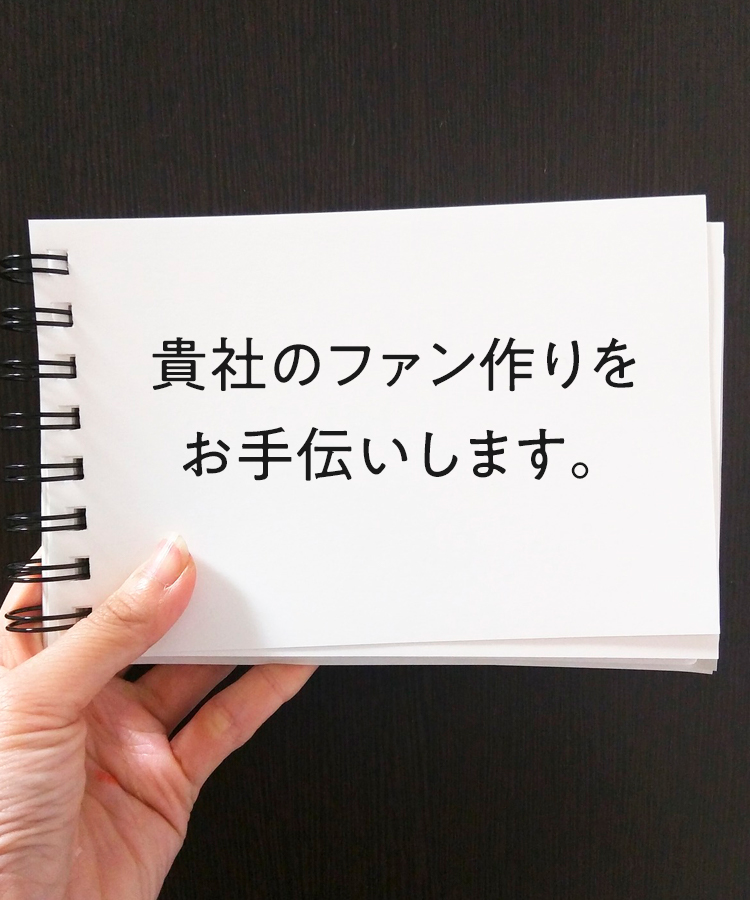 貴社のファン作りを
お手伝いします。